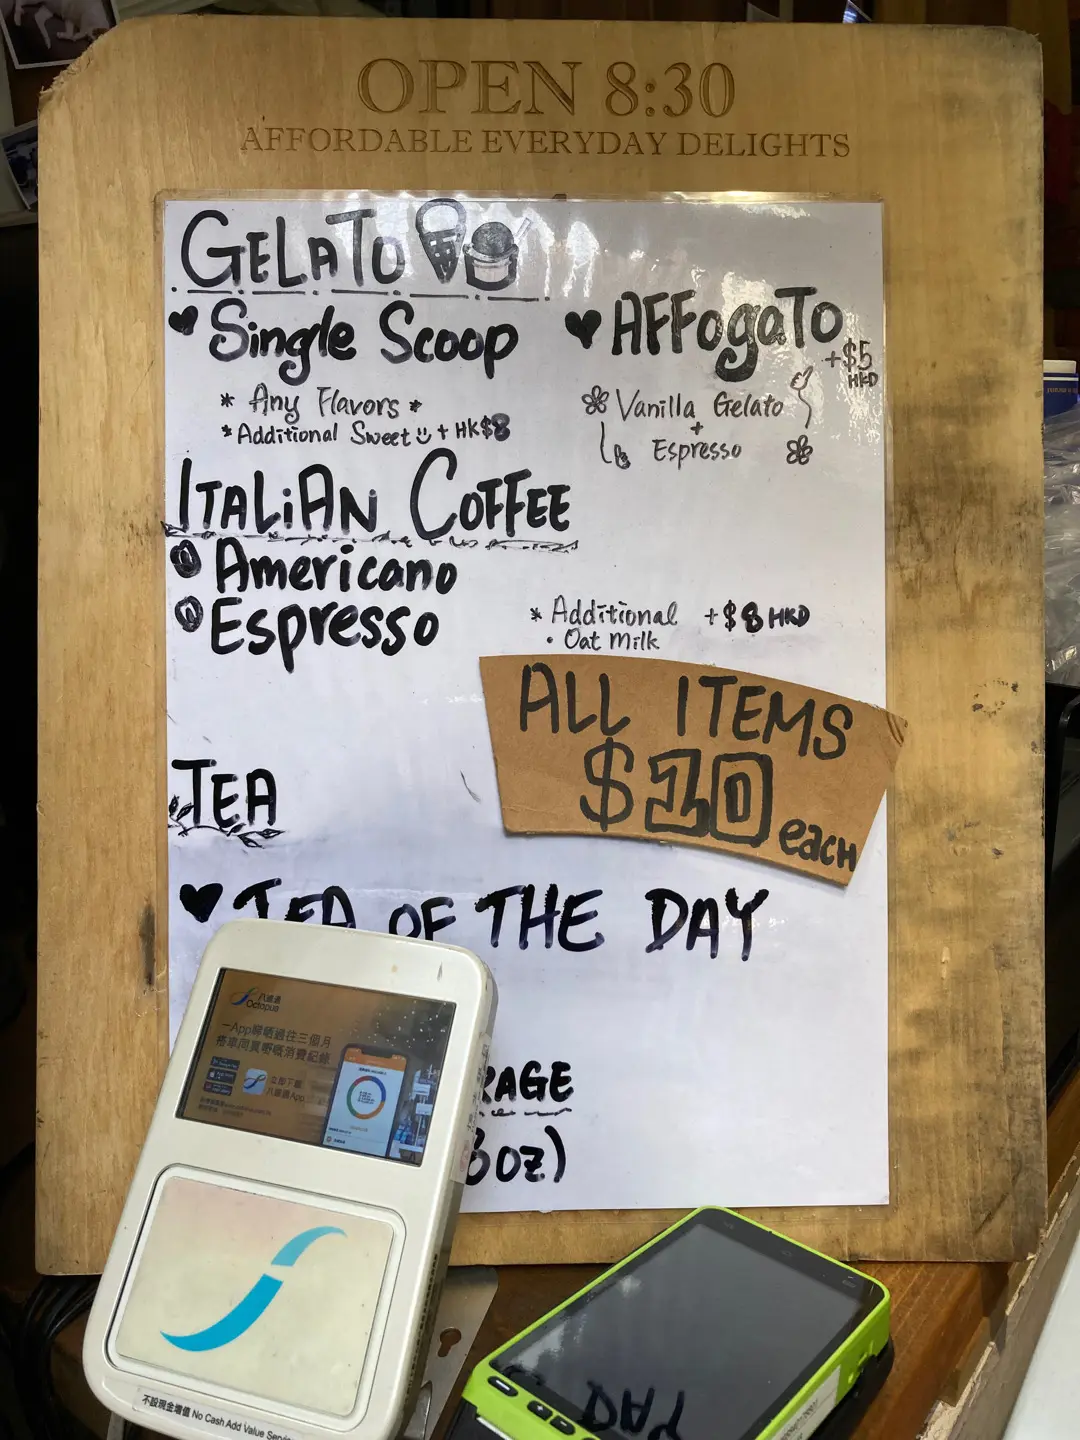 OPEN 8:30
AFFORDABLE EVERYDAY DELIGHTS
GELATO
Single Scoop
* Any Flavors *
*Additional Sweet + HK$8
AFFOgATO
+$5
HKD
Vanilla Gelato
+
Espresso
ITALiAN COFFEE
Americano
Espresso
* Additional +$8 HKD
• Oat Milk
ALL ITEMS
$10 each
TEA
TEA OF THE DAY
RAGE
oz)
八達通
Octopus
一App睇晒過往三個月
搭車同買嘢嘅消費紀錄
立即下載
八達通App
不設現金增值 No Cash Add Value Service